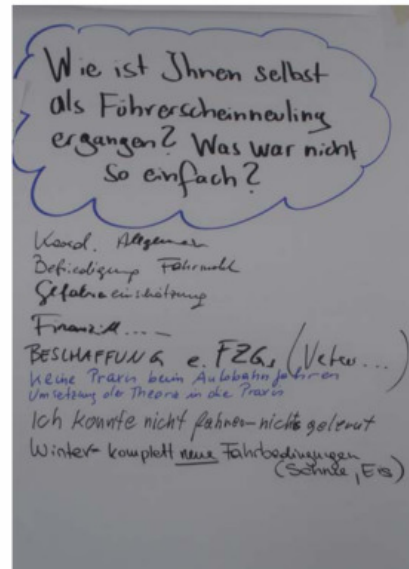 Wie ist Ihnen selbst
als Führerscheinneuling
ergangen? Was war nicht
so einfach?
Koord. Allgemein
Befriedigung
Gefahreneinschätzung
Finanziell....
BESCHAFFUNG e. FZGs (Vater...)
Keine Praxis beim Autobahnfahren
Umsetzung der Theorie in die Praxis
Ich konnte nicht fahren - nichts gelernt
Winter - komplett neue Fahrbedingungen
(Schnee, Eis)